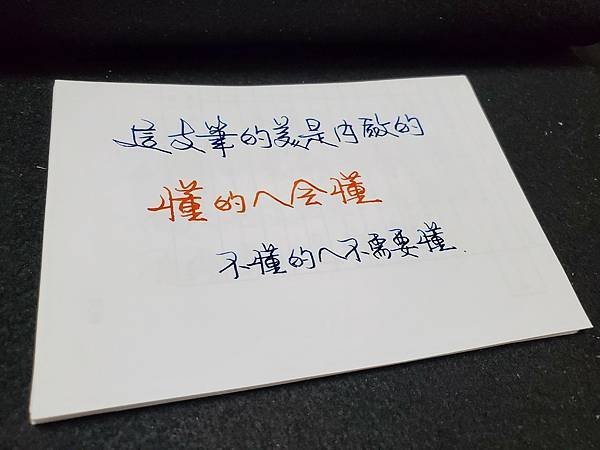 這支筆的美是內斂的
懂的人会懂
不懂的人不需要懂.